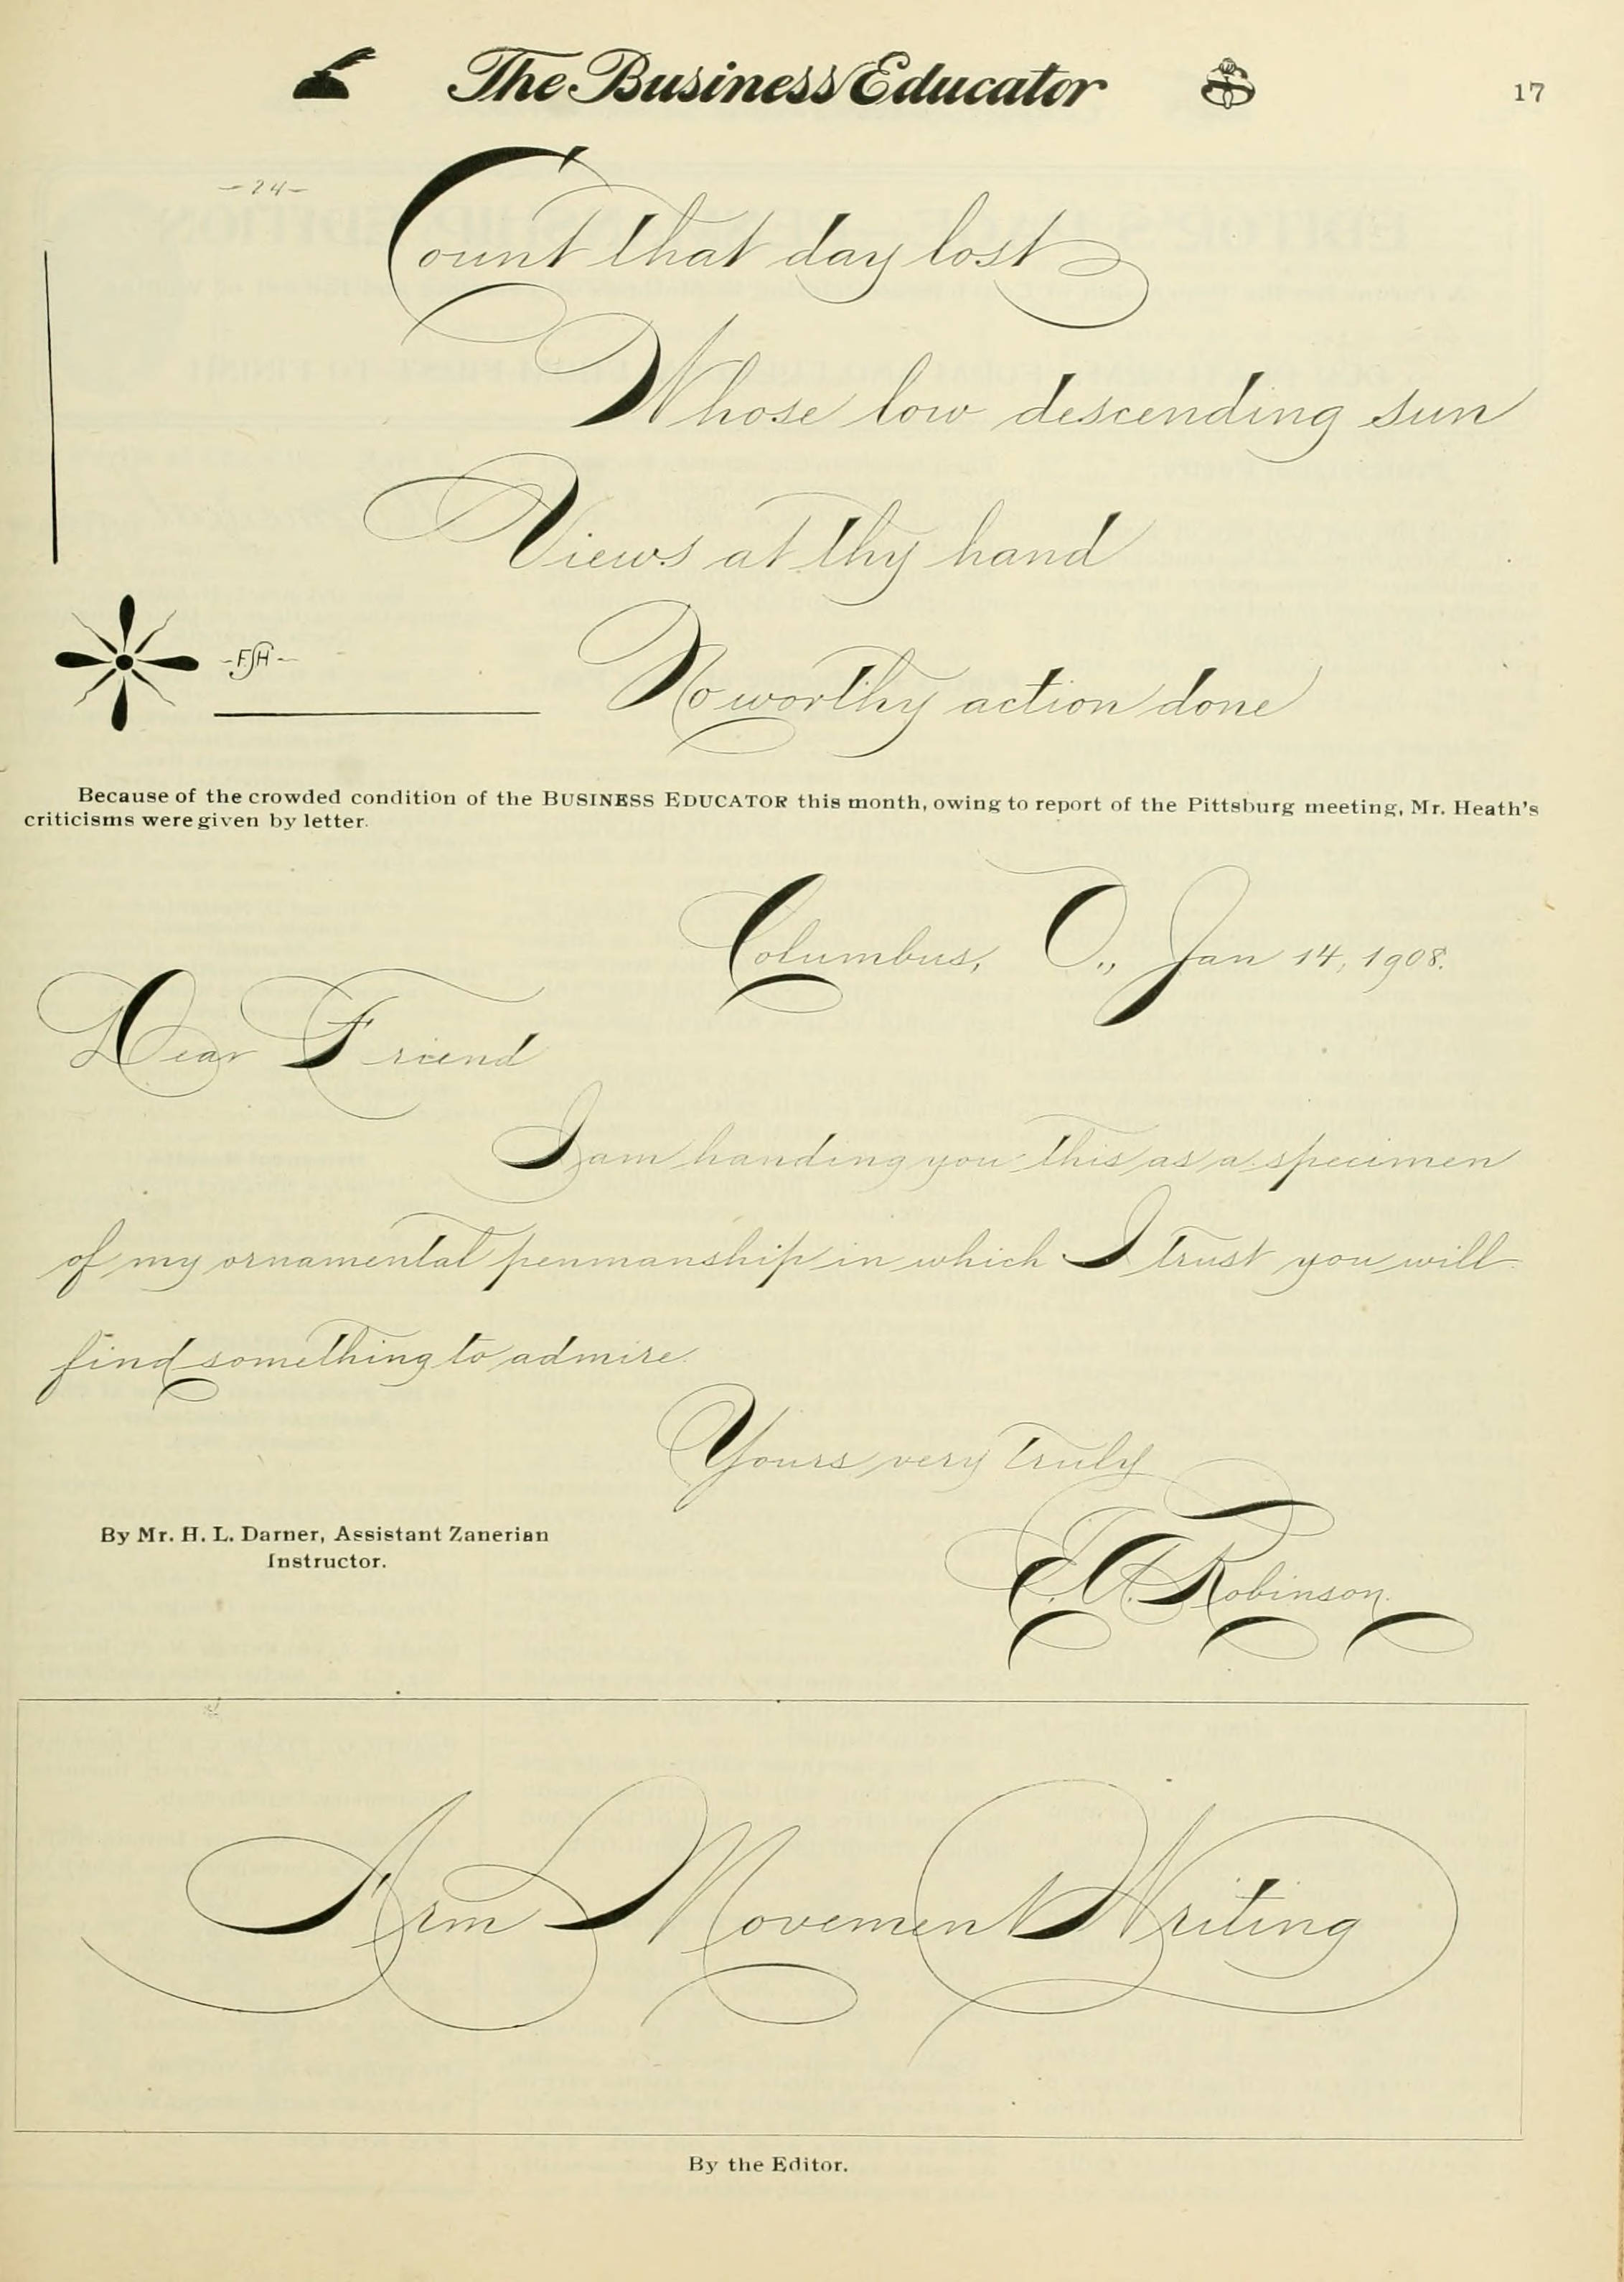 The Business Educator
17
-24-
Count that day lost
Whose low descending sun
Views at thy hand
-FSH-
No worthy action done
Because of the crowded condition of the BUSINESS EDUCATOR this month, owing to report of the Pittsburg meeting, Mr. Heath's
criticisms were given by letter.
Columbus, O., Jan 14, 1908.
Dear Friend
I am handing you this as a specimen
of my ornamental penmanship in which I trust you will
find something to admire.
Yours very truly
E. A. Robinson.
By Mr. H. L. Darner, Assistant Zanerian
Instructor.
Arm Movement Writing
By the Editor.